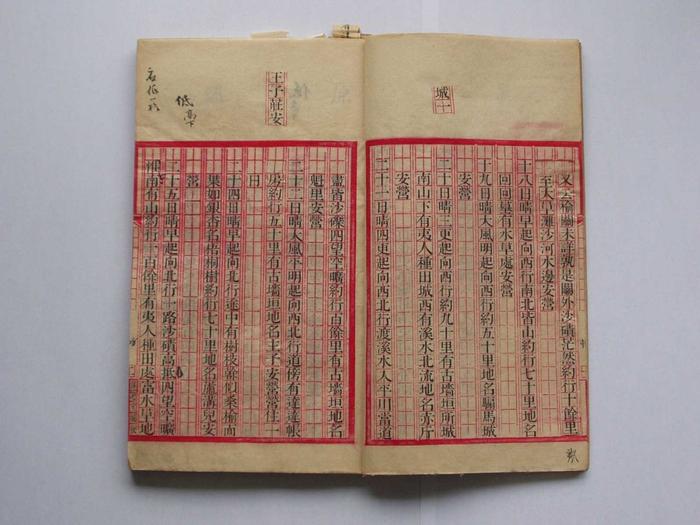 城十
又云榆關未詳就是關外沙磧茫然約行十餘里
至大草灘沙河水邊安營
十八日晴早起向西行南北皆山約行七十里地名
回回墓有水草處安營
十九日晴大風明起向西行約五十里地名騸馬城
安營
二十日晴三更起向西行約九十里有古墻垣所城
南山下有夷人種田城西有溪水北流地名赤斤
安營
二十一日晴四更起向西北行渡溪水入平川當道
王子莊安
盡皆沙礫四望空曠約行百餘里有古墻垣地名
魁里安營
二十二日晴大風平明起向西北行道傍有達達帳
房約行五十里有古墻垣地名王子安營營住一
日
二十四日晴早起向北行途中有樹枝幹似桑榆而
果如銀杏名梧桐樹約行七十里地名蘆溝兒安
營
二十五日晴早起向北行一路沙磧高低四望空曠
惟南有山約行一百餘里有夷人種田處富水草地
低高下